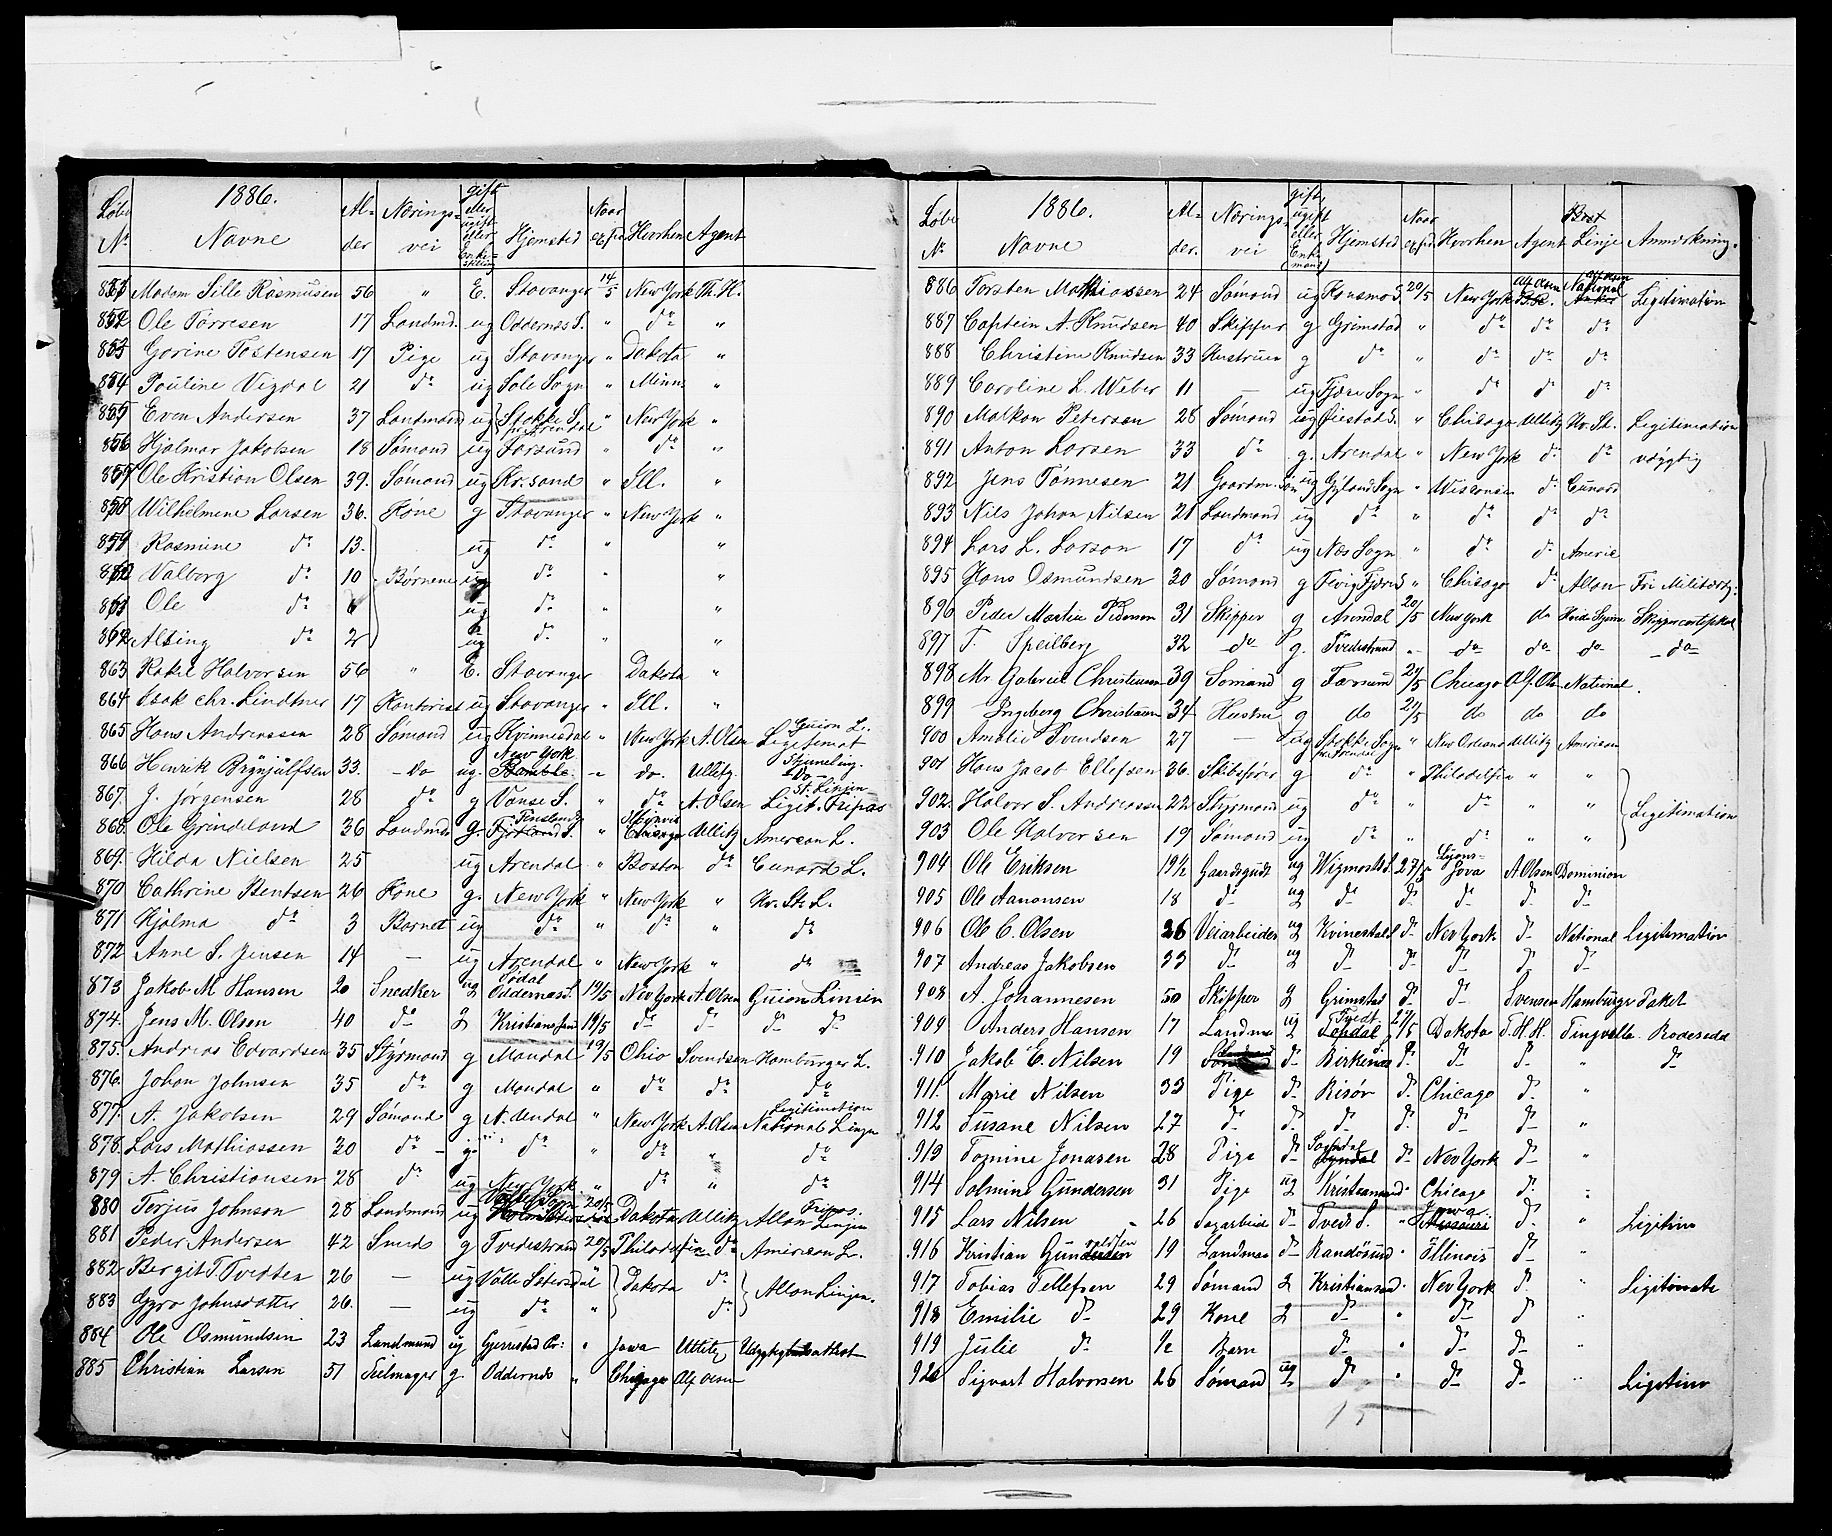 Løbe Nº 1886. Navne Alder Næringsvei gift eller ugift eller Enkestilling Hjemsted Naar expd Hvorhen Agent
851 Madam Sille Rasmusen 56 " E. Stavanger 14/5 New York Th. H.
852 Ole Tørresen 17 Landmd. ug Oddernes S. " dº "
853 Gorine Tostensen 17 Pige ug Stavanger " Dakota "
854 Pauline Vigdal 21 dº ug Sole Sogn " Minn "
855 Even Andersen 37 Landmand ug Stokke S. pr Arendal " New York "
856 Hjalmar Jakobsen 18 Sømand ug Farsund " dº "
857 Ole Kristian Olsen 39. Sømand ug Kr.sand " Ill. "
858 Wilhelmine Larsen 36. Kone g Stavanger " New York "
859 Rasmine dº 13. ug dº " "
860 Valborg dº 10 Børnene ug dº " "
861 Ole dº 6 ug dº " "
862 Alting dº 2 ug dº " "
863 Rakel Halvorsen 56 " E. Stavanger Dakota "
864 Isak Chr. Lindtner 17 Kontorist ug Stavanger " Ill. "
865 Hans Andreassen 28 Sømand ug Kvinnesdal " New York A. Olsen Guion L. Legitimat
866 Henrik Brynjulfsen 33. - do ug. New York Bamble - do. Ullitz. Stjernelinj. - Do -
867. J. Jørgensen 28 dº g Vanse S. " dº A. Olsen St. Linjen Legit. Fripas
868. Ole Grindeland 36 Landmd g. Fjotland S. " Chicago Ullitz American L.
869. Hilda Nielsen 25 ug Arendal " Boston dº Cunard L.
870 Cathrine Bentsen 26 Kone g. New York " New York " Hv. St. L.
871 Hjalma dº 3 Barnet ug dº " dº " dº
872 Anne S. Jensen 14 - ug Arendal " New York " do
873 Jakob M Hansen 20 Snedker ug Oddernes S. 19/5 New York A. Olsen Guion Linien
874. Jens M. Olsen 40 dº g Kristiansand 19/5 dº dº dº dº
875. Andreas Edvardsen 35 Styrmand g Mandal 19/5 Ohio Svendsen Hamburger L.
876. Johan Johnsen 35 dº g Mandal " dº dº dº
877. A. Jakobsen 29 Sømand g N. Mandal " New York A. Olsen Legitimation National Linje
878. Lars Mathiassen 20 dº - g. dº " dº " dº
879 A. Christiansen 28 dº ug New York " dº " dº
880 Terjus Johnson 28 Landmand ug Valle Sogn 20/5 Dakota Ullitz Fripas. Allan Linjen
881 Peder Andersen 42 Smed g Tvedestrand 20/5 Philadelfia dº American L.
882 Bergit T Tvedten 26 - ug Valle Sætersdal Dakota dº Allan Linjen.
883 Gyro Johnsdatter 26. - ug dº " dº
884 Ole Osmundsen 23 Landmand ug Gjerrestad Pr: " Jowa Ullitz
885 Christian Larsen 51 Seilmager g. Oddernes " Chicago Alf Olsen
Løbe Nº 1886. Navne Alder. Næringsvei gift, ugift eller Enke(mand) Hjemsted Naar expd. Hvorhen Agent Linje Anmærkning.
886 Torsten Mathiassen 24 Sømand ug Konsmo S. 20/5 New York Alf Olsen National Legitimation
887 Captein A. Knudsen 40 Skipper g Grimstad " dº dº dº
888 Christine Knudsen 33 Hustruen g dº " dº dº dº
889 Caroline L. Weber 11 - ug Fjære Sogn " dº dº dº
890 Malkon Petersen 28 Sømand ug Øiestad S. " Chicago Ullitz Hv. St. Legitimation
891 Anton Larsen 33 dº g. Arendal " New York d. dº
892 Jens Tønnesen 21 Gaardm. Søn ug Gyland Sogn " Wisconsin d. Cunard
893 Nils Johan Nilsen 21 Landmand ug dº " dº dº dº
894 Lars L. Larson 17 dº ug Næs Sogn " dº dº Americ
895 Hans Osmundsen 30 Sømand g Fevig Fjære S " Chicago dº Allan Fri Militærtj.
896 Peder Martin Pedersen 31 Skipper g Arendal 20/5 New York do Hvide Stjerne Skippercertifikat
897 T. Speilberg 32 do g. Tvedestrand - do do do - do -
898 Mr Gabriel Christensen 39 Sømand g Farsund 21/5 Chicago Alf. Ols National.
899 Ingeborg Christensen 34 Hustru g do 21/5 do do do
900 Amalie Svendsen 27 - ug Stokke Sogn pr Arendal " New Orleans Ullitz American
901 Hans Jacob Ellefsen 36. Skibsfører g dº " Philadelfia " "
902. Halvor S. Andreassen 22 Styrmand ug dº " dº " " Legitimation
903 Ole Halvorsen 19 Sømand ug dº " dº " "
904 Ole Eriksen 19½ Gaardsgudt ug Wigmostad S. 27/5 Lyons- Jova A Olsen Dominion
905 Ole Aanonsen 18 d. ug d. d. d. d. d.
906 Ole C. Olsen 26 Veiarbeider ug Kvinesdal S d. New York d. National Legitimation
907 Andreas Jakobsen 33 d. ug d. d. d. d. d.
908 A. Johannesen 50 Skipper g Grimstad d. d. Svensen Hamburger Paket
909 Anders Hansen 17 Landma ug Tvedt 27/5 Dakota T. H. H. Tingvalla Rodersdd
910 Jakob E. Nilsen 19 d. Birkenæs d. d. d. " d.
911. Marie Nilsen 33 Pige d. Risør d. Chicago d. "
912 Susane Nilsen 27 d. d. d. d. d. d. "
913 Tomine Jonasen 28 Pige d. Sogndal d. New York d. "
914 Tolmine Gundersen 31 Pige ug Kristiansand Chicago d. "
915 Lars Nilsen 26 Sagarbeid d. Tvedt S. " Jowa. Missouri d. " Ligitimo
916 Kristian Gundersen 19 Landma d. Randøsund " Illinois d. "
917 Tobias Tellefsen 29 Sømand g Kristiansand " New York d. " Ligitimate
918 Emilie d. 29 Kone g d. " d. d "
919 Julie d. ½ Barn d. " d. d. "
920 Sigvart Halvorsen 26 Sømand ug d. " d. d. " Ligitimo
15